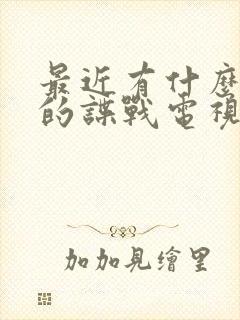 最近有什麼
的諜戰電視
加加見繪里